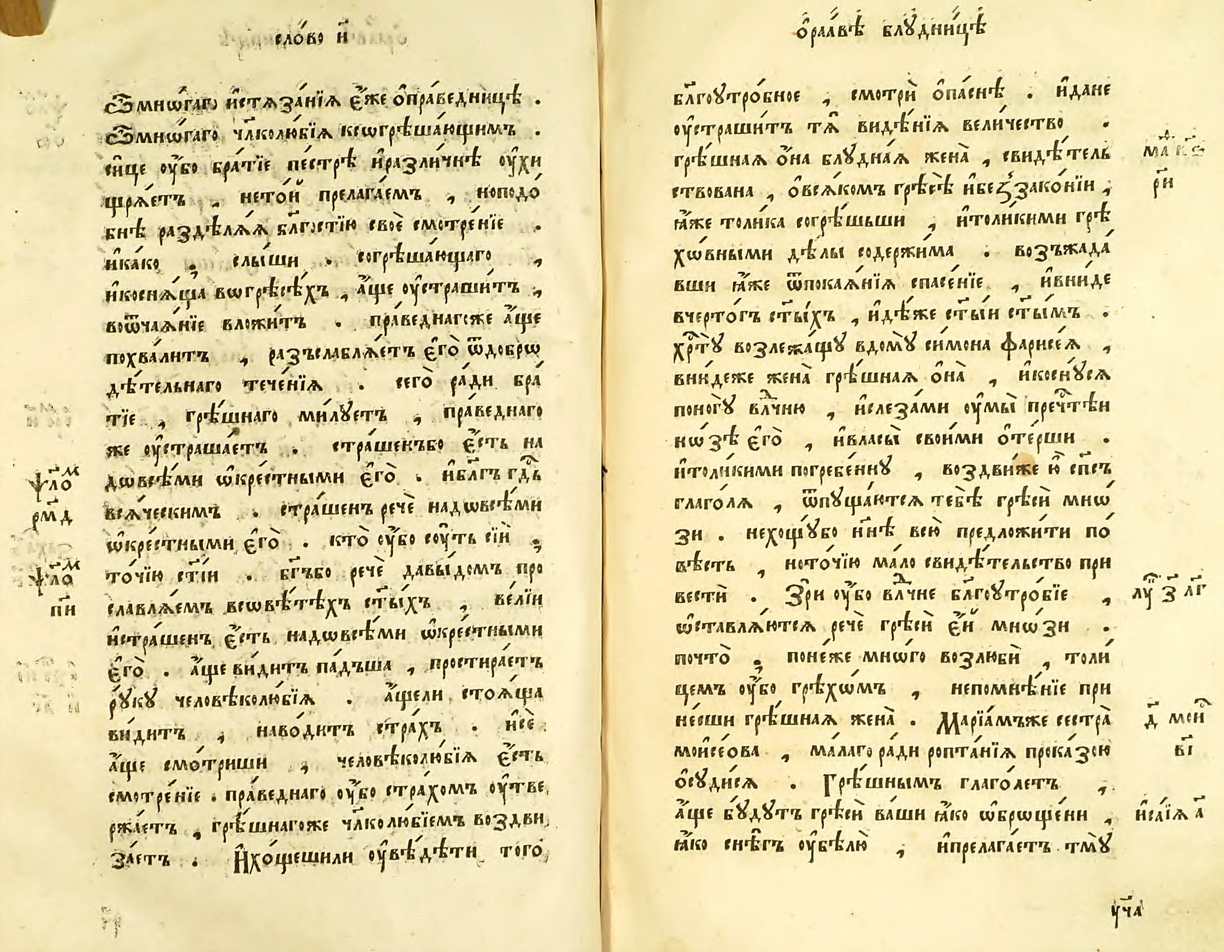 сло́во и҃
Ѿмнѡ́гагѡ и҆стѧза́нїѧ є҆́же ѻ҆пра́ведницѣ .
Ѿмнѡ́гаго чл҃колю́бїѧ ксѡгрѣша́ющимъ .
си́це ᲂу҆̀бо бра́тїе пе́стрѣ и҆разли́чнѣ ᲂу҆хи
щрѧ́етъ , нето́й прелага́емъ , ноподо́
бнѣ раздѣлѧ́ѧ бл҃гостїю своѐ смотре́нїе .
и҆ка́ко . слы́ши . согрѣша́ющаго ,
и҆коснѧ́ща вогрѣсѣ́хъ , а҆́ще ᲂу҆страши́тъ ,
воѿча́ѧнїе вложи́тъ . пра́веднагоже а҆́ще
похва́литъ , разъслаблѧ́етъ є҆го̀ ѿдобрѡ
дѣ́тельнаго тече́нїѧ . сего̀ ра́ди бра́
тїе , грѣ́шнаго ми́луетъ , пра́веднаго
же ᲂу҆страша́етъ . стра́шенъбо є҆́сть на
дѡвсѣ́ми ѡ҆кре́стными є҆гѡ̀ . и҆бл҃гъ гдⷭ҇ь
всѧ́ческимъ . стра́шенъ речѐ надѡвсѣ́ми
ѡ҆кре́стными є҆гѡ̀ . кто̀ ᲂу҆́бо сꙋ́ть сі́и ;
то́чїю ст҃і́и . бг҃ъбо речѐ давы́домъ про
славлѧ́емъ всѡвѣ́тѣхъ ст҃ы́хъ , ве́лїи
и҆стра́шенъ є҆́сть надѡвсѣ́ми ѡ҆кре́стными
є҆го̀ . а҆́ще ви́дитъ па́дъша , простира́етъ
рꙋ́кꙋ человѣколю́бїѧ . а҆́щели стоѧ́ща
ви́дитъ , наво́дитъ стра́хъ . и҆сѐ
а҆́ще смо́триши , человѣколю́бїѧ є҆́сть
смотре́нїе . пра́веднаго ᲂу҆́бо стра́хомъ ᲂу҆тве
ржа́етъ , грѣ́шнагоже чл҃колю́бїемъ воздви
за́етъ . И҆хо́щешили ᲂу҆вѣ́дѣти того̀
ѱало́м
рм҃д
ѱало́м
пи҃
ѻ҆раа́вѣ блꙋдни́цѣ
бл҃гоꙋтро́бное , смотрѝ ѻ҆па́снѣ . и҆дане
ᲂу҆страши́тъ тѧ̀ видѣ́нїѧ вели́чество .
грѣ́шнаѧ ѻ҆́на блꙋ́днаѧ жена̀ , свидѣ́тель
ствована , ѻ҆всѧ́комъ грѣсѣ̀ и҆беззако́нїи ,
ꙗ҆́же толи́ка согрѣ́шьши , и҆толи́кими грѣ
хо́вными дѣ́лы содержи́ма . возъжада́
вши ꙗ҆́же ѿпокаѧ́нїѧ спасе́нїе , и҆вни́де
вчерто́гъ ст҃ы́хъ , и҆дѣ́же ст҃ы́и ст҃ы́мъ .
хрⷭ҇тꙋ̀ возлежа́щꙋ вдомꙋ̀ си́мона фарисе́ѧ ,
вни́деже жена̀ грѣ́шнаѧ ѻ҆на̀ , и҆коснꙋ́сѧ
поно́гꙋ влⷣчню , и҆слеза́ми ᲂу҆мы̀ пречⷭ҇тѣи
но́зѣ є҆го̀ , и҆власы̀ свои́ми ѻ҆те́рши .
и҆толи́кими погребе́ннꙋ , воздви́же ю҆̀ сп҃съ
глаго́лѧ , ѿпꙋща́ютсѧ тебѣ̀ грѣсѝ мно́
зи . нехощꙋ́бо нн҃ѣ всю̀ предложи́ти по́
вѣсть ,ното́чїю ма́ло свидѣ́тельство при
вестѝ . Зри̂ ᲂу҆́бо влⷣчне бл҃гоꙋтро́бїе ,
ѡ҆ставлѧ́ютсѧ речѐ грѣсѝ є҆́й мно́зи .
почто̀ ; поне́же мно́го возлюбѝ , толи́
цемъ ᲂу҆́бо грѣхѡ́мъ , непомнѣ́нїе при
не́сши грѣ́шнаѧ жена̀ . Марїа́мъже сестра̀
мѡѷсе́ова , ма́лаго ра́ди ропта́нїѧ прока́зою
ѻ҆сꙋди́сѧ . Грѣ́шнымъ глаго́летъ ,
а҆́ще бꙋ́дꙋтъ грѣсѝ ва́ши ꙗ҆́ко ѡ҆брѡще́ни ,
ꙗ҆́ко снѣ́гъ ᲂу҆бѣлю̀ , и҆прелага́етъ тмꙋ̀
лꙋ҃ з҃ лг҃
д҃ мои҃
ві҃
и҆са́їѧ а҃
ꙋ҃ча